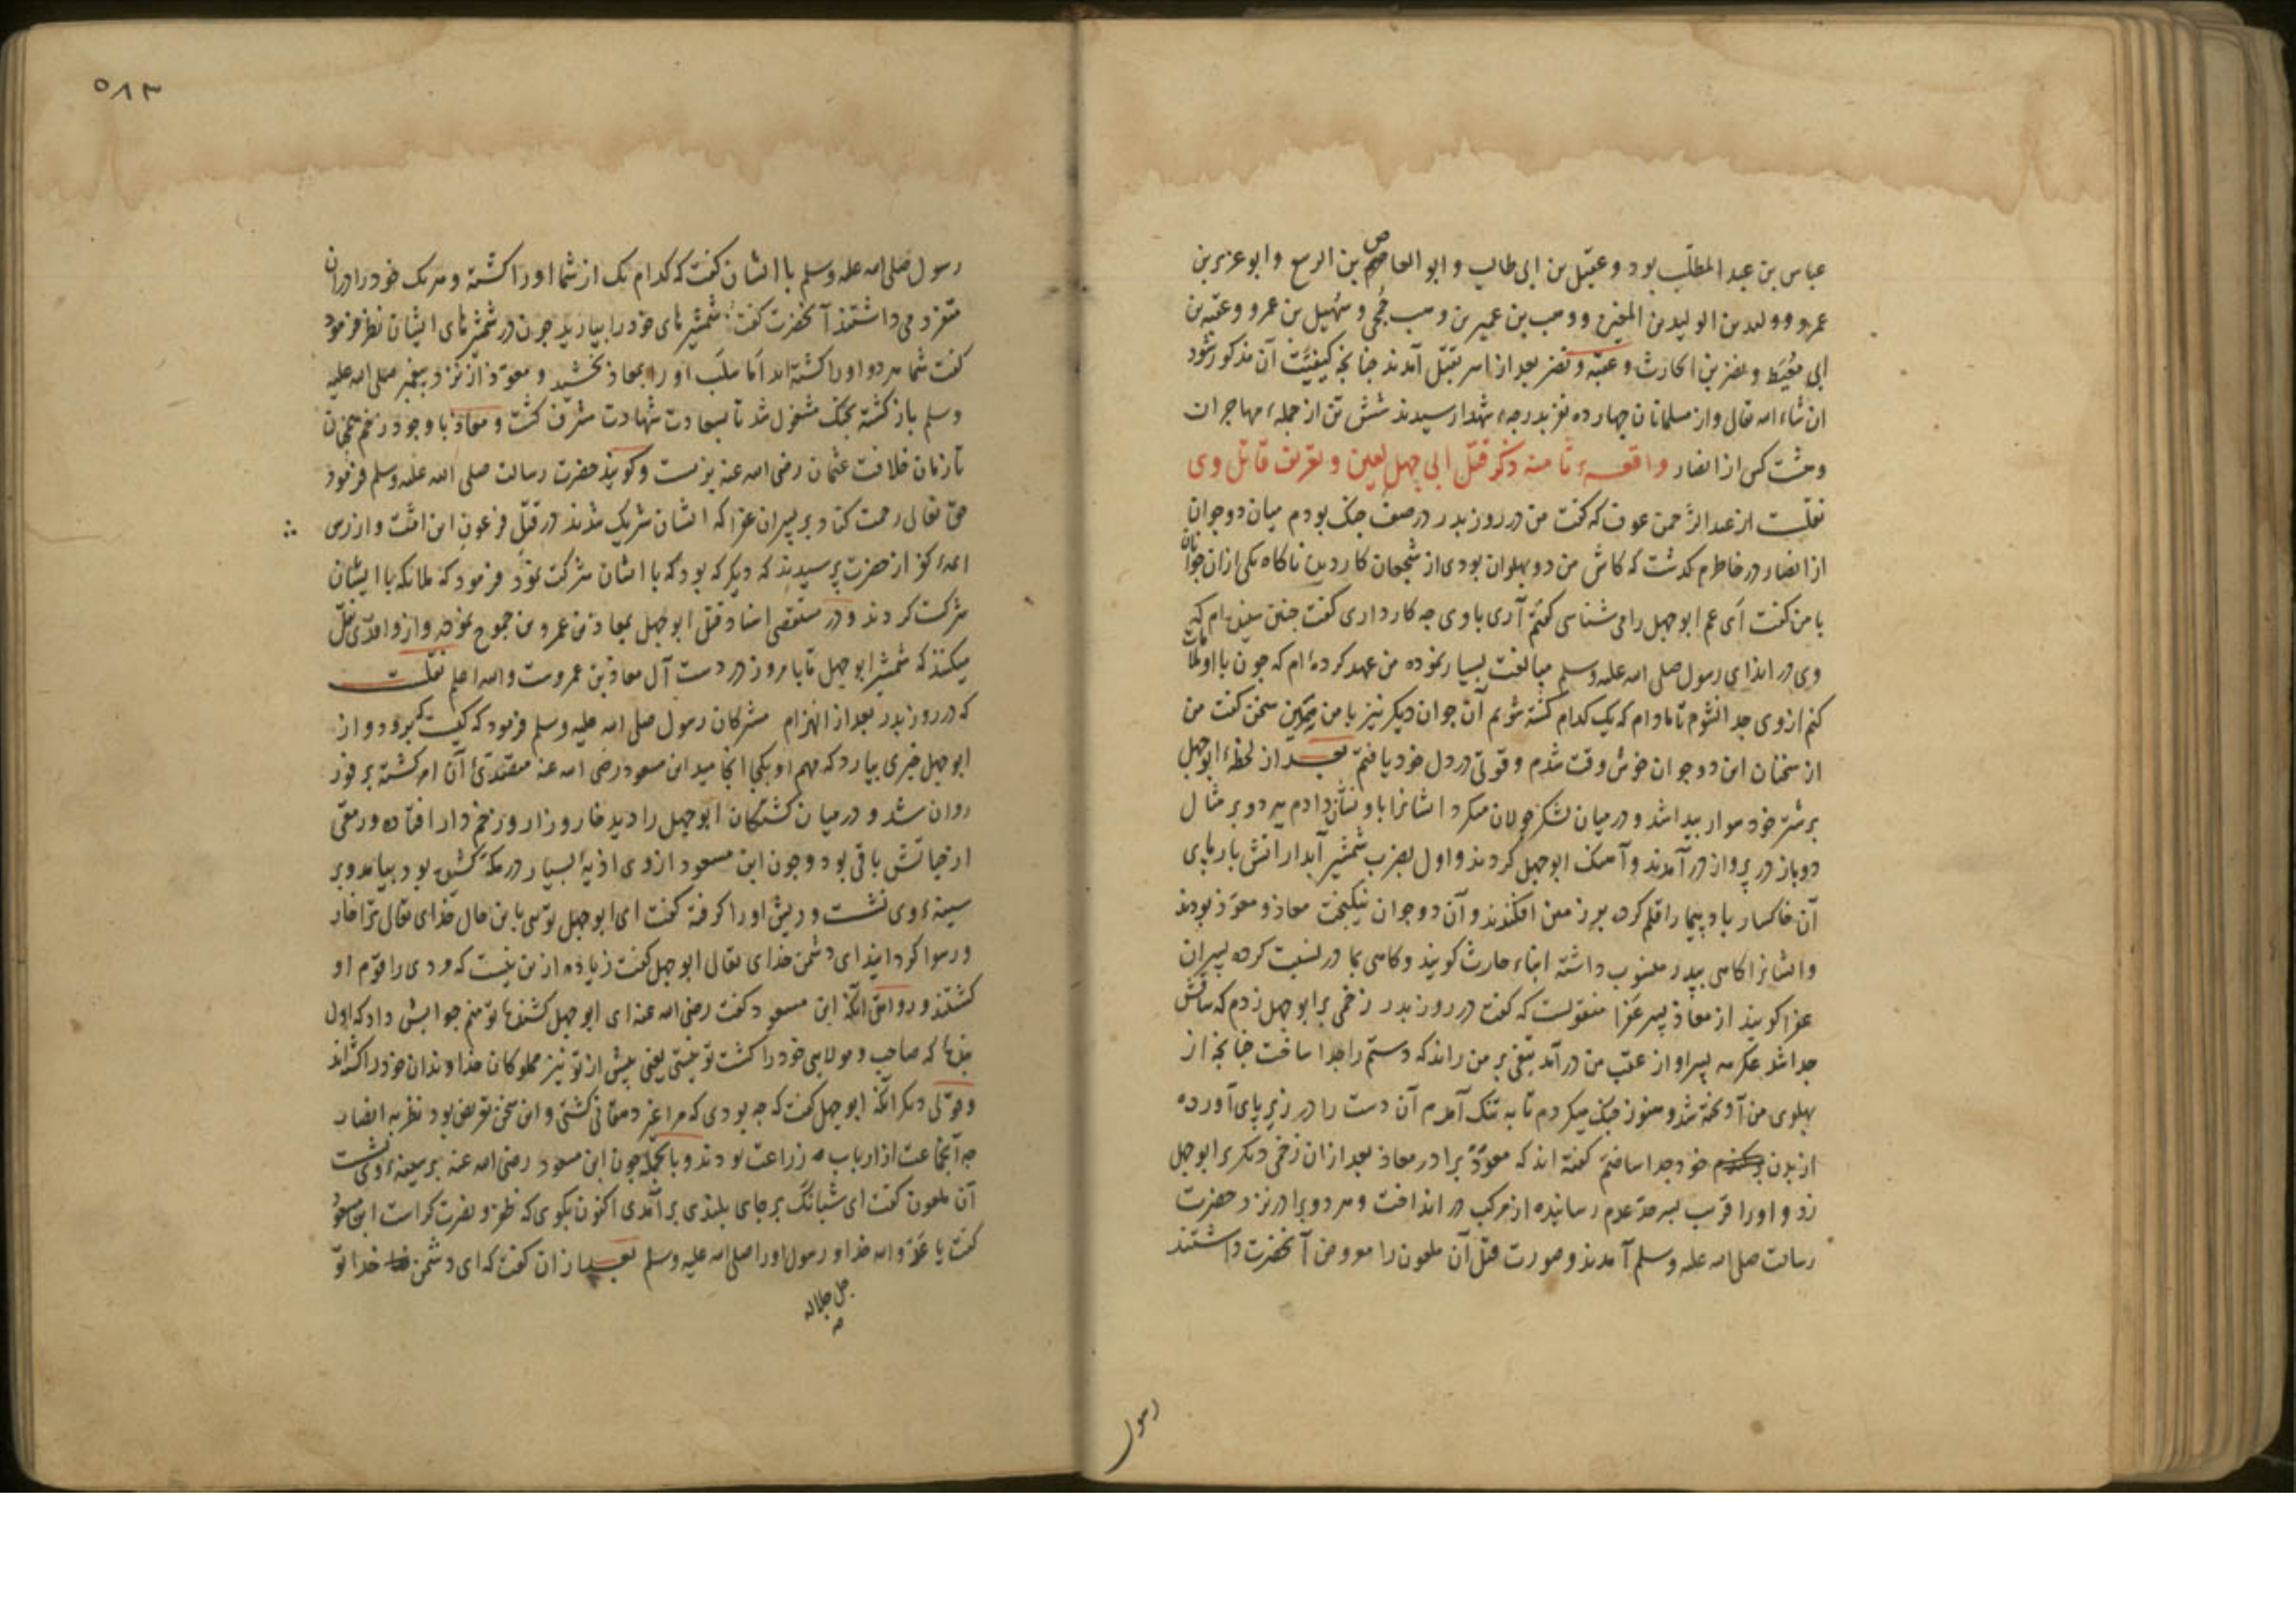 عباس بن عبد المطلّب بود و عقیل بن ابی طالب و ابو العاص بن الربیع و ابو عزیر بن
عمرو و ولید بن الولید بن المغیره و وهب بن عمیر بن وهب جُمحی و سُهیل بن عمرو و عقبه بن
ابی مُعَیط و نضر بن الحارث و عقبه و نضر بعد از اسر بقتل آمدند چنانچه کیفیّت آن مذکور شود
ان شاء الله تعالی و از مسلمانان چهارده نفر بدرجهٔ شهدا رسیدند شش تن از جملهٔ مهاجران
و هشت کس از انصار واقعهٔ ثامنه ذکر قتل ابی جهل لعین و تعریف قاتل وی
نقلست از عبد الرّحمن عوف که گفت من در روز بدر در صف جنک بودم میان دو جوان
از انصار در خاطرم گذشت که کاش من دو پهلوان بودی از شجعان کار دیده ناکاه یکی از ان جوانان
با من گفت ای عم ابو جهل را می شناسی گفتم آری با وی چه کار داری گفت چنین شنیده ام که
وی در ایذای رسول صلی الله علیه وسلم مبالغت بسیار نموده من عهد کرده ام که چون با او ملاقات
کنم از وی جدا نشوم تا مادام که یک کدام کشته شویم آن جوان دیکر نیز با من همین سخن گفت من
از سخنان این دو جوان خوش وقت شدم و قوتی در دل خود یافتم بعد از لحظهٔ ابو جهل
بر شتر خود سوار پیدا شد و در میان لشکر جولان میکرد ایشانرا باو نشان دادم هر دو بر مثال
دو باز در پرواز در آمدند و آهنک ابو جهل کردند و اول بضرب شمشیر آبدار اتش بار پای
آن خاکسار باد پیما را قلم کرده بر زمین افکندند و آن دو جوان نیکبخت معاذ و معوّذ بودند
و ایشانرا کاهی بپدر منسوب داشته ابناء حارث کویند و کاهی بمادر نسبت کرده پسران
عفرا کویند از معاذ پسر عفرا منقولست که گفت در روز بدر زخمی بر ابو جهل زدم که ساقش
جدا شد عکرمه پسر او از عقب من در آمد تیغی بر من راند که دستم را جدا ساخت چنانچه از
پهلوی من آویخته شد و هنوز جنک میکردم تا به تنک آمدم آن دست را در زیر پای آورده
از بدن خود جدا ساختم گفته اند که معوّذ برادر معاذ بعد از ان زخمی دیکر بر ابو جهل
زد و او را قریب بسرحدّ عدم رسانیده از مرکب در انداخت و هر دو برادر نزد حضرت
رسالت صلی الله علیه وسلم آمدند و صورت قتل آن ملعون را معروض آنحضرت داشتند
رسول
٥٨٣
رسول صلی الله علیه وسلم با ایشان گفت که کدام یک از شما او را کشته و هر یک خود را در ان
متفرد می داشتند آنحضرت گفت شمشیر های خود را بیارید چون در شمشیر های ایشان نظر فرمود
گفت شما هر دو او را کشته اید اما سلَب او را بمعاذ بخشید و معوّذ از نزد پیغمبر صلی الله علیه
وسلم باز کشته بجنک مشغول شد تا بسعادت شهادت مشرّف کشت و معاذ با وجود زخم چنان
تا زمان خلافت عثمان رضی الله عنه بزیست و کویند حضرت رسالت صلی الله علیه وسلم فرمود
حق تعالی رحمت کناد بر پسران عفرا که ایشان شریک شدند در قتل فرعون این امّت و از رس
ایمهٔ کفر از حضرت پرسیدند که دیکر که بود که با ایشان شرکت نمود فرمود که ملائکه با ایشان
شرکت کردند و در مستقصی اسناد قتل ابو جهل بمعاذ بن عمرو بن جموح نموده و از واقدی نقل
میکنند که شمشیر ابو جهل تا بامروز در دست آل معاذ بن عمروست والله اعلم نقلست
که در روز بدر بعد از انهزام مشرکان رسول صلی الله علیه وسلم فرمود که کیست که برود و از
ابو جهل خبری بیارد که مهم او بکجا انجامید ابن مسعود رضی الله عنه متصدّی آن امر کشته بر فور
روان شد و در میان کشتکان ابو جهل را دید خار و زار و زخم دار افتاده و رمقی
از حیاتش باقی بود و چون ابن مسعود از وی اذیهٔ بسیار در مکّه کشیده بود بیامد و بر
سینهٔ وی نشست و ریش او را کرفته گفت ای ابو جهل توئی باین حال خدای تعالی ترا خار
و رسوا کردانید ای دشمن خدای تعالی ابو جهل گفت زیاده از ین نیست که مردی را قوم او
کشتند و روایتی انکه ابن مسعود گفت رضی الله عنه ای ابو جهل کشندهٔ تو منم جوابش داد که اول
بندهٔ که صاحب و مولای خود را کشت تو نیستی یعنی پیش از تو نیز مملوکان خداوندان خود را کشته اند
و قولی دیکر آنکه ابو جهل گفت که چه بودی که مرا غیر دهقانی کشتی و این سخن تعریض بود نظر به انصار
چه آنجماعت از ارباب زراعت بودند و بالجمله چون ابن مسعود رضی الله عنه بر سینهٔ وی نشست
آن ملعون گفت ای شبانک بر جای بلندی بر آمدی اکنون بکوی که ظفر و نصرت کراست ابن مسعود
گفت یا عدوّ الله خدا و رسول او را صلی الله علیه وسلم بعد از ان گفت که ای دشمن خدا تو
جل جلاله